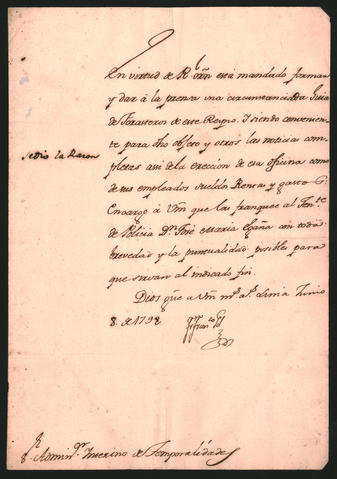 En virtud de R.l orñ está mandado formar
y dar à la prensa una circunstanciada Guia
de Forasteros de este Reyno. Y siendo conveniente
para dho objeto y otros las noticias com
pletas asi de la ereccion de esa oficina como
de sus empleados sueldo Rentas y gastos
Encargo à Vm que las franquee al Ten.te
de Policia D.n José Maria Egaña con toda
brevedad y la puntualidad posibles para
que sirvan al indicado fin.
Dios gūe a Vm m.s a.s Lima Junio
8. de 1798
se dio la Razon
S.r Admin.or Interino de Temporalidades